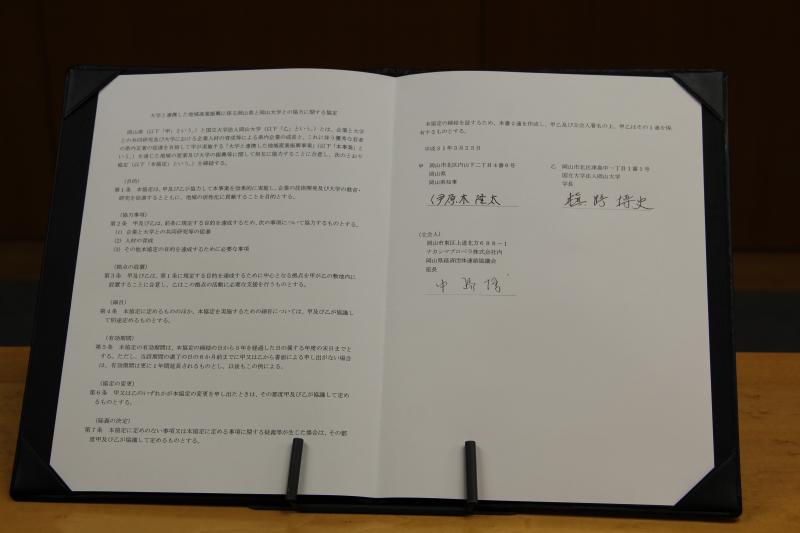 大学と連携した地域産業振興に係る岡山県と岡山大学との協力に関する協定
岡山県（以下「甲」という。）と国立大学法人岡山大学（以下「乙」という。）とは、企業と大学
との共同研究及び大学における企業人材の育成等による県内企業の成長と、これに伴う優秀な若者
の県内定着の促進を目指して甲が実施する「大学と連携した地域産業振興事業」（以下「本事業」と
いう。）を通じた地域の産業及び大学の振興等に関して相互に協力することに合意し、次のとおり
協定（以下「本協定」という。）を締結する。
（目的）
第１条　本協定は、甲及び乙が協力して本事業を効果的に実施し、企業の技術開発及び大学の教育・
研究を促進するとともに、地域の活性化に貢献することを目的とする。
（協力事項）
第２条　甲及び乙は、前条に規定する目的を達成するため、次の事項について協力するものとする。
(1) 企業と大学との共同研究等の促進
(2) 人材の育成
(3) その他本協定の目的を達成するために必要な事項
（拠点の設置）
第３条　甲及び乙は、第１条に規定する目的を達成するために中心となる拠点を甲が乙の敷地内に
設置することに合意し、乙はこの拠点の活動に必要な支援を行うものとする。
（細目）
第４条　本協定に定めるもののほか、本協定を実施するための細目については、甲及び乙が協議し
て別途定めるものとする。
（有効期間）
第５条　本協定の有効期間は、本協定の締結の日から５年を経過した日の属する年度の末日までと
する。ただし、当該期間の満了の日の６か月前までに甲又は乙から書面による申し出がない場合
は、有効期間は更に１年間延長されるものとし、以後もこの例による。
（協定の変更）
第６条　甲又は乙のいずれかが本協定の変更を申し出たときは、その都度甲及び乙が協議して定め
るものとする。
（疑義の決定）
第７条　本協定に定めのない事項又は本協定に定める事項に関する疑義等が生じた場合は、その都
度甲及び乙が協議して定めるものとする。
本協定の締結を証するため、本書２通を作成し、甲乙及び立会人署名の上、甲乙はその１通を保
有するものとする。
平成３１年３月２５日
甲　岡山市北区内山下二丁目４番６号
岡山県
岡山県知事
伊原木 隆太
乙　岡山市北区津島中一丁目１番１号
国立大学法人岡山大学
学長
槇野 博史
（立会人）
岡山市東区上道北方６８８－１
ナカシマプロペラ株式会社内
岡山県経済団体連絡協議会
座長
中島 博